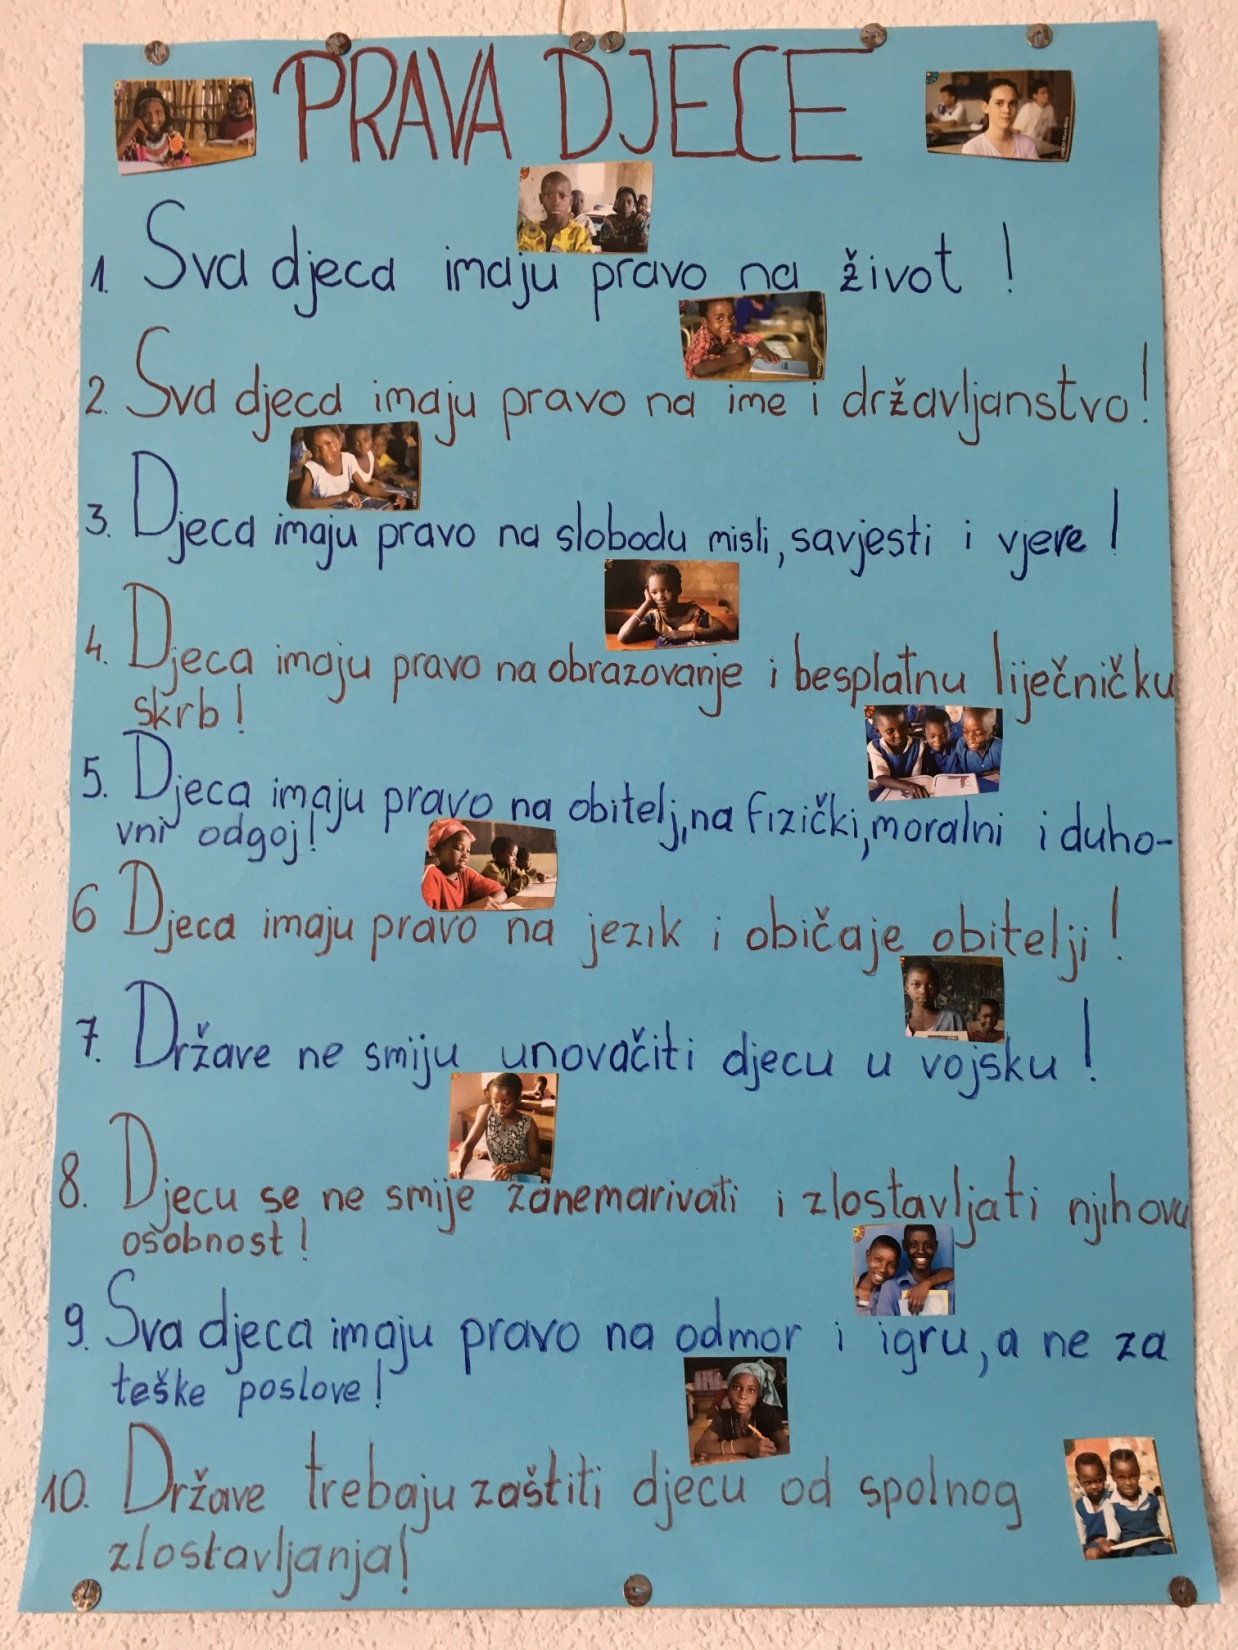 PRAVA DJECE
1. Sva djeca imaju pravo na život !
2. Sva djeca imaju pravo na ime i državljanstvo!
3. Djeca imaju pravo na slobodu misli, savjesti i vjere !
4. Djeca imaju pravo na obrazovanje i besplatnu liječničku
skrb!
5. Djeca imaju pravo na obitelj, na fizički, moralni i duho-
vni odgoj!
6 Djeca imaju pravo na jezik i običaje obitelji !
7. Države ne smiju unovačiti djecu u vojsku !
8. Djecu se ne smije zanemarivati i zlostavljati njihovu
osobnost !
9. Sva djeca imaju pravo na odmor i igru, a ne za
teške poslove !
10. Države trebaju zaštiti djecu od spolnog
zlostavljanja!